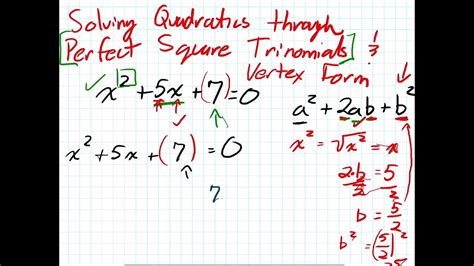 Solving Quadratics through
Perfect Square Trinomials &
Vertex Form
x² + 5x + (7) = 0
a² + 2ab + b²
x² = √x² = x
x² + 5x + (7) = 0
2·b/2 = 5/2
b = 5/2
7
b² = (5/2)²
25